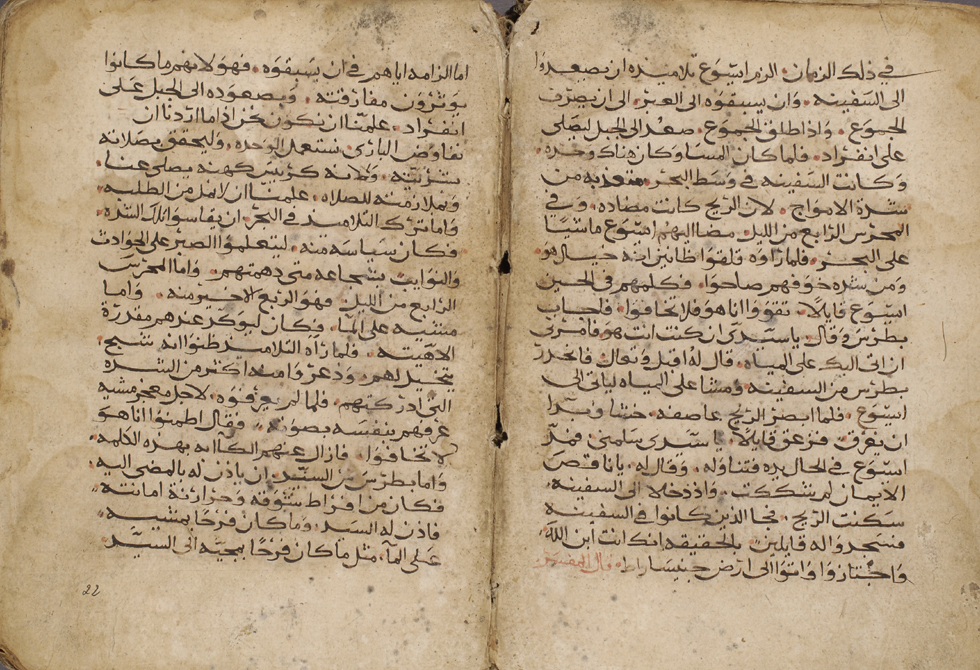 في ذلك الزمان الزم ايسوع تلاميذه ان يصعدوا
الى السفينه وان يسبقوه الى العبر الى ان يصرف
الجموع واذا طلق الجموع صعد الى الجبل ليصلي
على انفراد فلما كان المسا وكان هناك وحده
وكانت السفينه في وسط البحر متعذبه من
شدة الامواج لان الريح كانت مضاده وفي
المحرس الرابع من الليل مضا اليهم ايسوع ماشيا
على البحر فلما راوه قلقوا ظانين انه خيال هو
ومن شده خوفهم صاحوا فكلمهم في الحين
ايسوع قايلا تقووا انا هو فلا تخافوا فاجاب
بطرس وقال يا سيدي ان كنت انت هو فامرني
ان اتي اليك على المياه قال له اقبل وتعال فانحدر
بطرس من السفينه ومشا على المياه لياتي الى
ايسوع فلما ابصر الريح عاصفه خشا وبدا
ان يغرق فزعق قايلا يا سيدي سلمني فمد
ايسوع في الحال يده فتناوله وقال له يا ناقص
الايمان لم شككت واذ دخلا الى السفينه
سكنت الريح فجا الذين كانوا في السفينه
فسجدوا له قايلين بالحقيقه انك انت ابن الله
واجتازوا واتوا الى ارض جنيسارات قال المفسر
اما الزامه اياهم في ان يسبقوه فهو لانهم ما كانوا
يوثرون مفارقته وبصعوده الى الجبل على
انفراد علمنا ان نكون نحن اذا ما اردنا ان
نفاوض الباري نستعمل الوحده وليحقق بصلاته
بشريته ولانه كريس كهنه يصلي عنا
وبملازمته للصلاه علمنا ان لا نمل من الطلبه
واما تركه التلاميذ في البحر ان يقاسوا تلك الشده
فكان سياسه منه ليتعلموا الصبر على الحوادث
والنوايب بشجاعه متى دهمتهم واما المحرس
الرابع من الليل فهو الربع الاخير منه واما
مشيه على الما فكان ليوكد عندهم مقدرة
الاهيته فلما راه التلاميذ ظنوا انه شبح
يتخيل لهم وذعروا منه اكثر من الشده
التي ادركتهم فلما لم يعرفوه لاجل معجز مشيه
عرفهم بنفسه بصوته وقال اطمنوا انا هو
لا تخافوا فازال عنهم الكابه بهذه الكلمه
واما بطرس من السيد ان ياذن له بالمضي اليه
فكان من افراط شوقه وحرارة امانته
فاذن له السيد وما كان فرحا بمشيه
على الما مثل ما كان فرحا بمجيه الى السيد
22